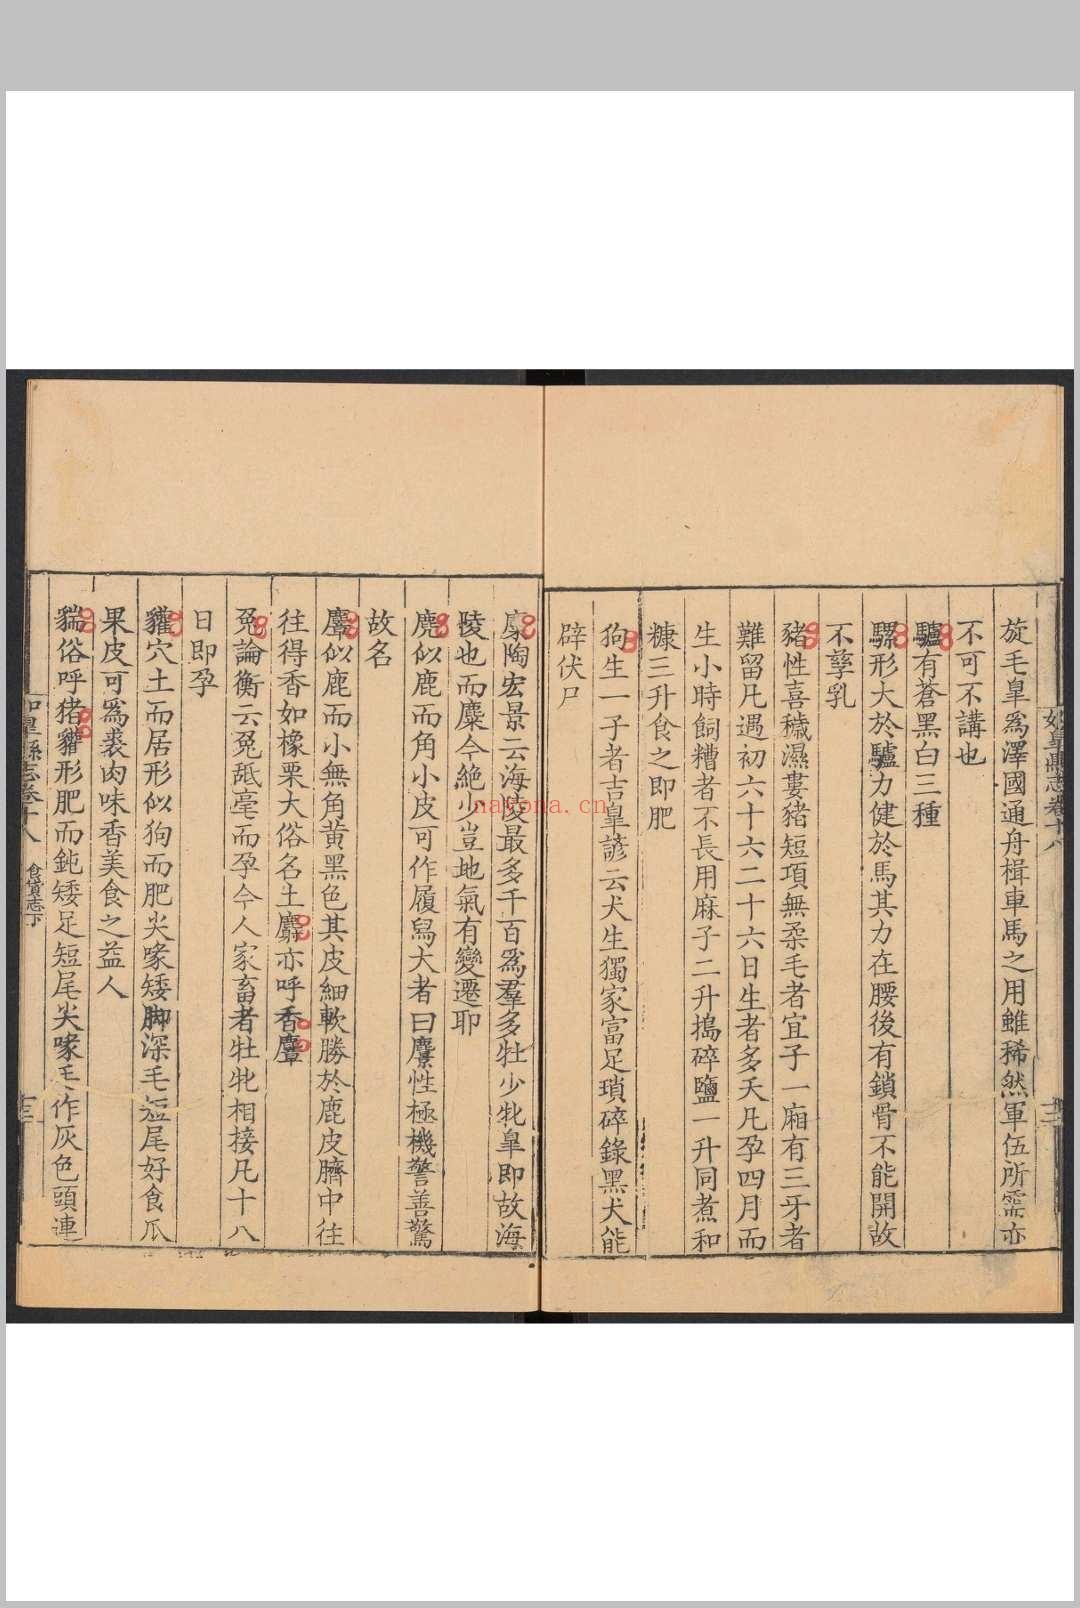 如皋縣志卷十八
旋毛皐爲澤國通舟楫車馬之用雖稀然軍伍所需亦
不可不講也
驢有蒼黑白三種
騾形大於驢力健於馬其力在腰後有鎖骨不能開故
不孳乳
豬性喜穢濕婁豬短項無柔毛者宜子一廂有三牙者
難留凡遇初六十六二十六日生者多夭凡孕四月而
生小時飼糟者不長用麻子二升搗碎鹽一升同煮和
糠三升食之即肥
狗生一子者吉皐諺云犬生獨家富足瑣碎錄黑犬能
辟伏尸
麋陶宏景云海陵最多千百爲羣多牡少牝皐即故海
陵也而麋今絕少豈地氣有變遷耶
麂似鹿而角小皮可作履舃大者曰麖性極機警善驚
故名
麞似鹿而小無角黃黑色其皮細軟勝於鹿皮臍中往
往得香如橡栗大俗名土麝亦呼香麞
兔論衡云兔舐毫而孕今人家畜者牡牝相接凡十八
日即孕
貛穴土而居形似狗而肥尖喙矮脚深毛短尾好食瓜
果皮可爲裘肉味香美食之益人
貒俗呼猪貛形肥而鈍矮足短尾尖喙毛作灰色頭連
如皐縣志卷十八 食貨志下 十三
nayona.cn